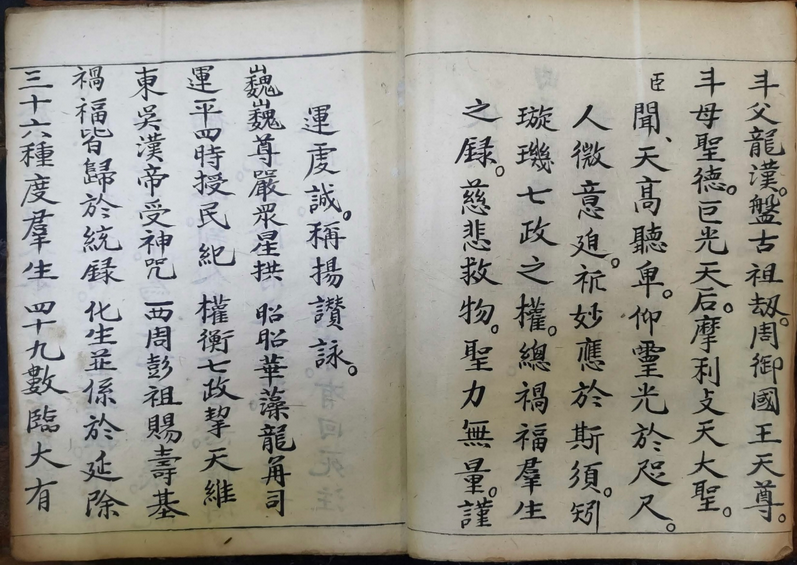 斗父龍漢。盤古祖刼。周御國王天尊。
斗母聖德。巨光天后。摩利攴天大聖。
臣聞、天高聽卑。仰霊光於咫尺。
人微意廹。祈妙應於斯須。矧
璇璣七政之權。總禍福羣生
之録。慈悲救物。聖力無量。謹
運虔誠。稱揚讚詠。
巍巍尊嚴眾星拱 昭昭華藻龍角司
運平四時授民紀 權衡七政挈天維
東吳漢帝受神咒 西周彭祖賜壽基
禍福皆歸於統録 化生並係於延除
三十六種度羣生 四十九數臨大有